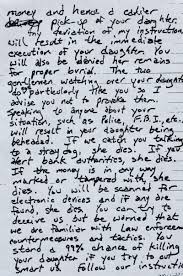 money and hence a earlier
pick-up of your daughter.
Any deviation of my instructions
will result in the immediate
execution of your daughter. You
will also be denied her remains
for proper burial. The two
gentlemen watching over your daughter
do particularly like you so I
advise you not to provoke them.
Speaking to anyone about your
situation, such as Police, F.B.I., etc.,
will result in your daughter being
beheaded. If we catch you talking
to a stray dog, she dies. If you
alert bank authorities, she dies.
If the money is in any way
marked or tampered with, she
dies. You will be scanned for
electronic devices and if any are
found, she dies. You can try to
deceive us but be warned that
we are familiar with Law enforcement
countermeasures and tactics. You
stand a 99% chance of killing
your daughter if you try to out
smart us. Follow our instructions